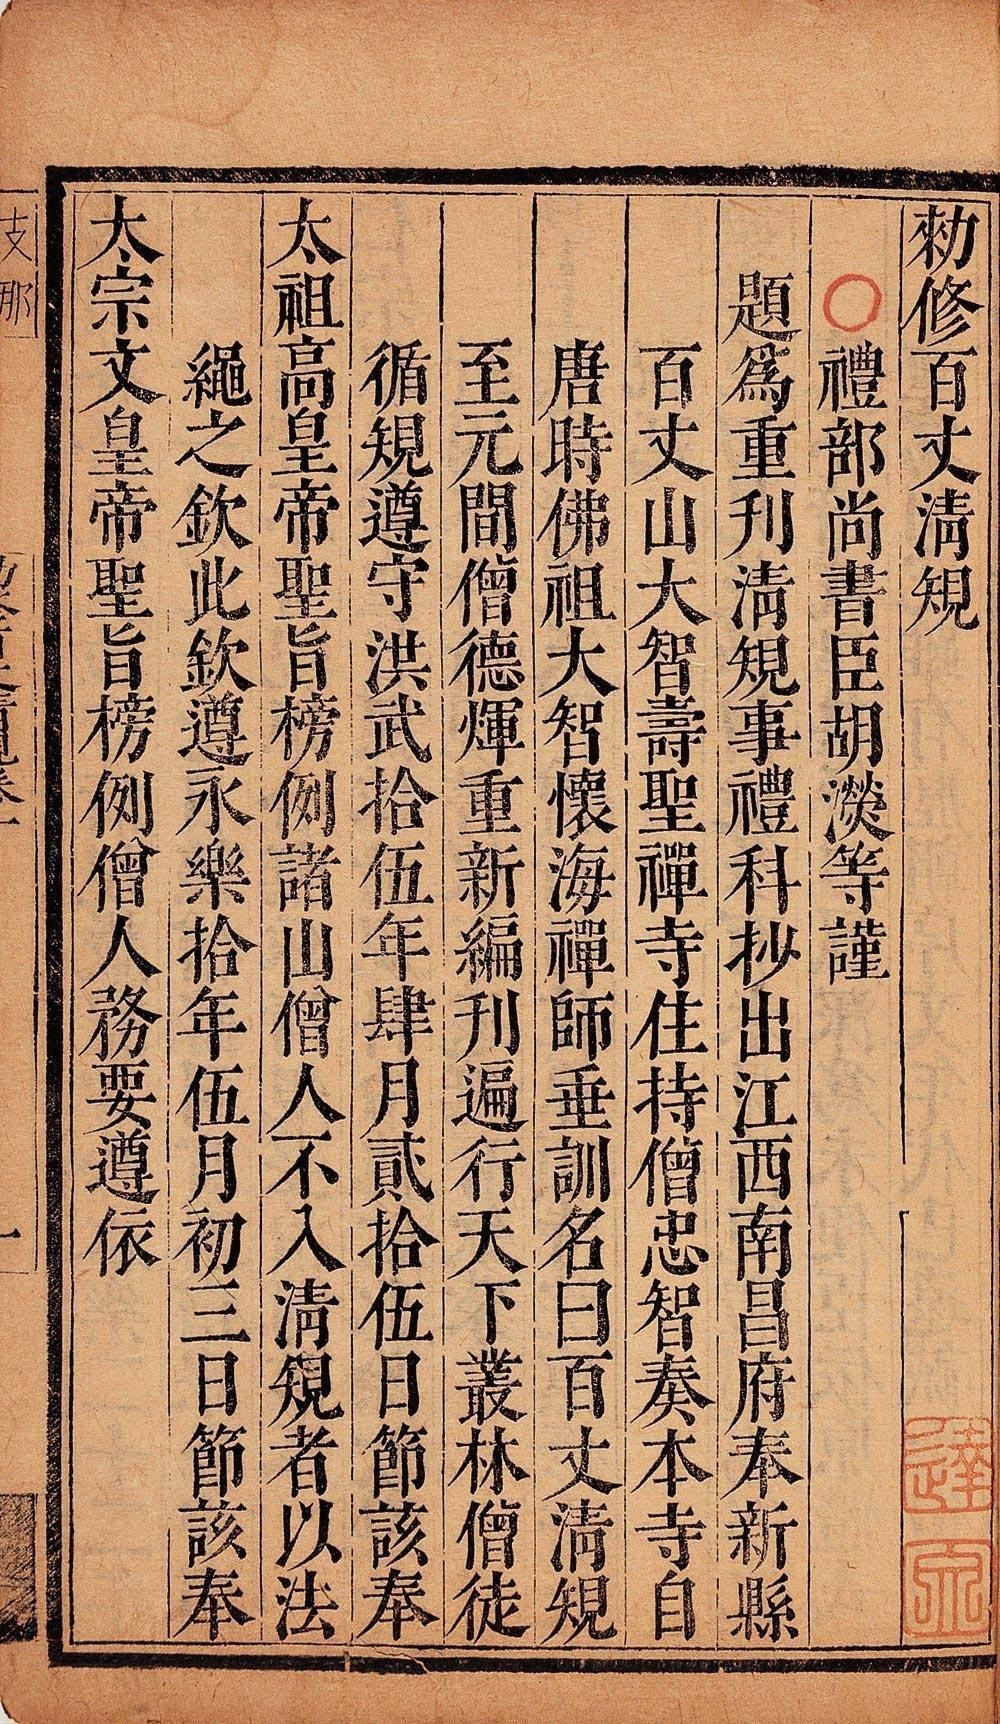 勑修百丈淸䂓
禮部尚書臣胡濙等謹
題爲重刊淸䂓事禮科抄出江西南昌府奉新縣
百丈山大智壽聖禪寺住持僧忠智奏本寺自
唐時佛祖大智懷海禪師垂訓名曰百丈淸䂓
至元間僧德煇重新編刊遍行天下叢林僧徒
循規遵守洪武拾伍年肆月貳拾伍日節該奉
太祖高皇帝聖旨榜例諸山僧人不入淸䂓者以法
繩之欽此欽遵永樂拾年伍月初三日節該奉
太宗文皇帝聖旨榜例僧人務要遵依
支那
一
達